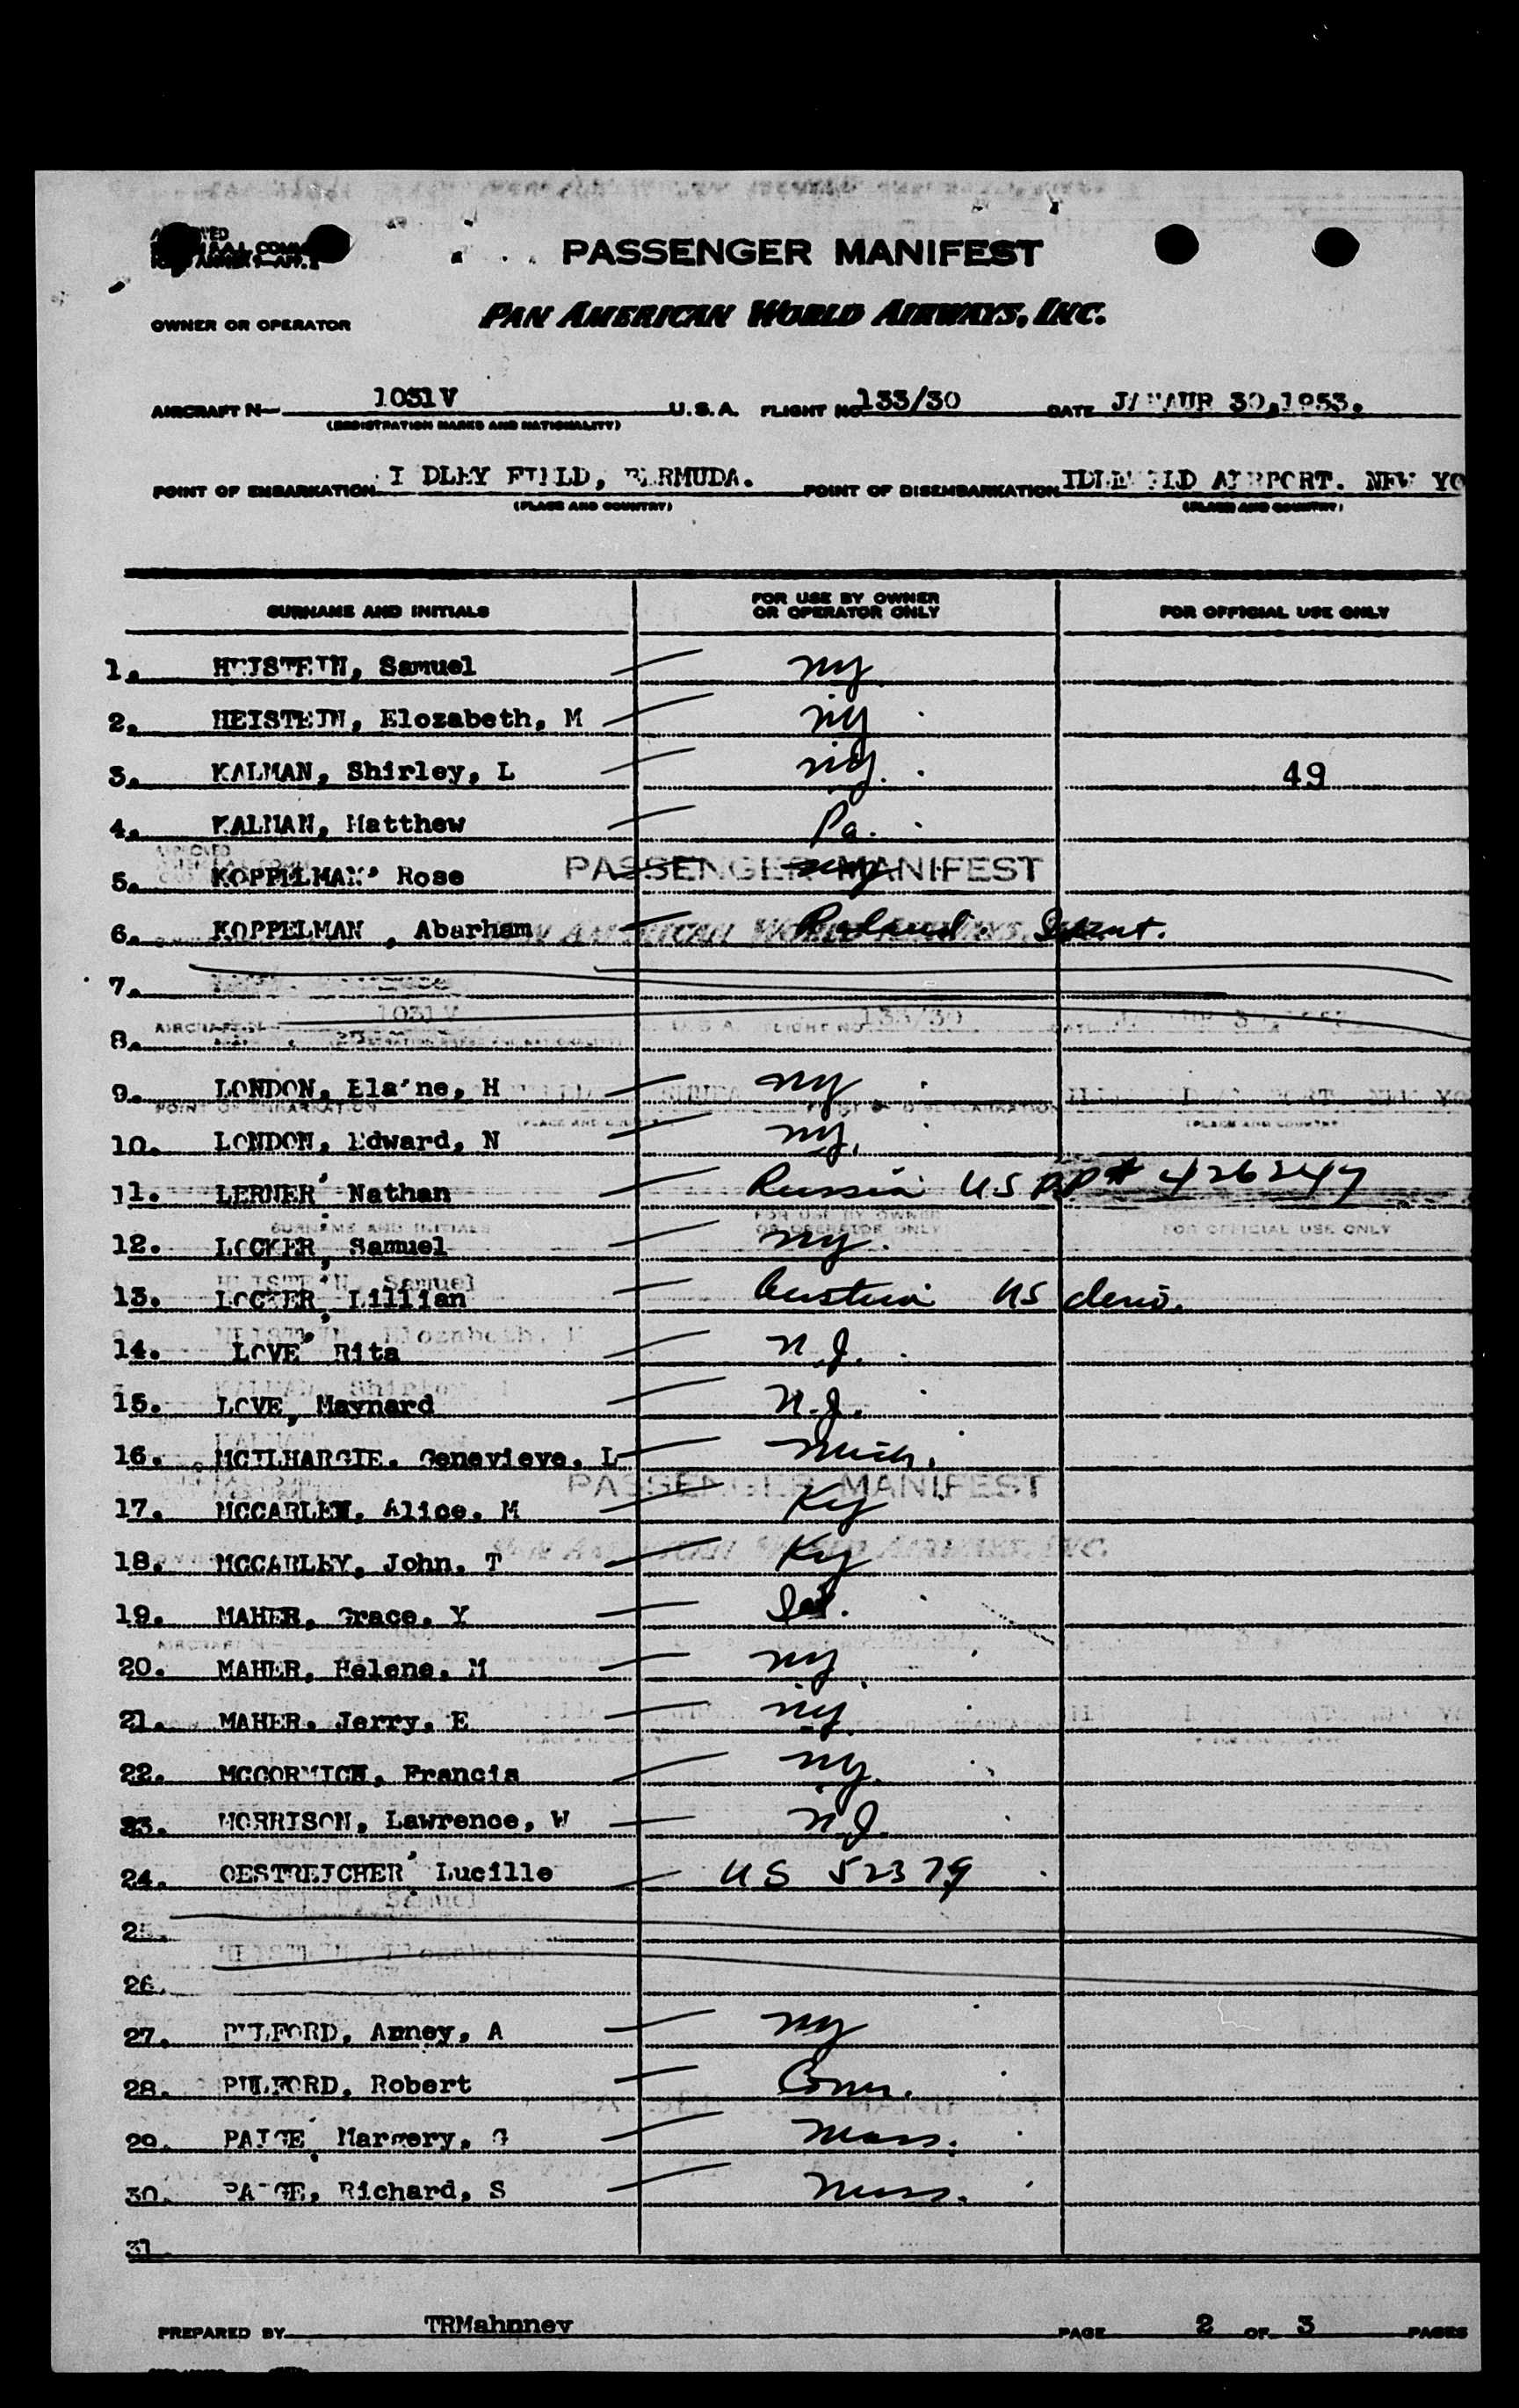 PASSENGER MANIFEST
OWNER OR OPERATOR PAN AMERICAN WORLD AIRWAYS, INC.
AIRCRAFT N— 1031V U.S.A. FLIGHT NO 133/30 DATE JANAUR 30,1953.
(REGISTRATION MARKS AND NATIONALITY)
POINT OF EMBARKATION I DLEY FIELD, BERMUDA. POINT OF DISEMBARKATION IDLEWILD AIRPORT. NEW YO
(PLACE AND COUNTRY) (PLACE AND COUNTRY)
SURNAME AND INITIALS FOR USE BY OWNER OR OPERATOR ONLY FOR OFFICIAL USE ONLY
1. HEISTEIN, Samuel — NY
2. HEISTEIN, Elozabeth, M — NY
3. KALMAN, Shirley, L — NY. 49
4. KALMAN, Matthew — Pa.
5. KOPPELMAN' Rose — NY
6. KOPPELMAN , Abarham — Poland.
7.
8.
9. LONDON, Elaine, H — NY
10. LONDON, Edward, N — NY.
11. LERNER' Nathan — Russia US PP# 426247
12. LOCKER, Samuel — NY.
13. LOCKER, Lillian — Austria US
14. LOVE' Rita — N.J.
15. LOVE, Maynard — N.J.
16. MCILHARGIE. Genevieve. L — Mich.
17. MCCARLEN. Alice. M — Ky
18. MCCARLEY, John. T — Ky
19. MAHER, Grace. Y —
20. MAHER, Helene. M — NY
21. MAHER. Jerry. E — NY
22. MCCORMICH, Francis — NY.
23. MORRISON, Lawrence, W — N.J.
24. OESTREICHER' Lucille — US 52379
25.
26.
27. PULFORD, Anney, A — NY
28. PULFORD, Robert — Conn.
29. PAIGE, Margery, G — Mass.
30. PAIGE, Richard, S — Mass.
31.
PREPARED BY TRMahnney PAGE 2 OF 3 PAGES